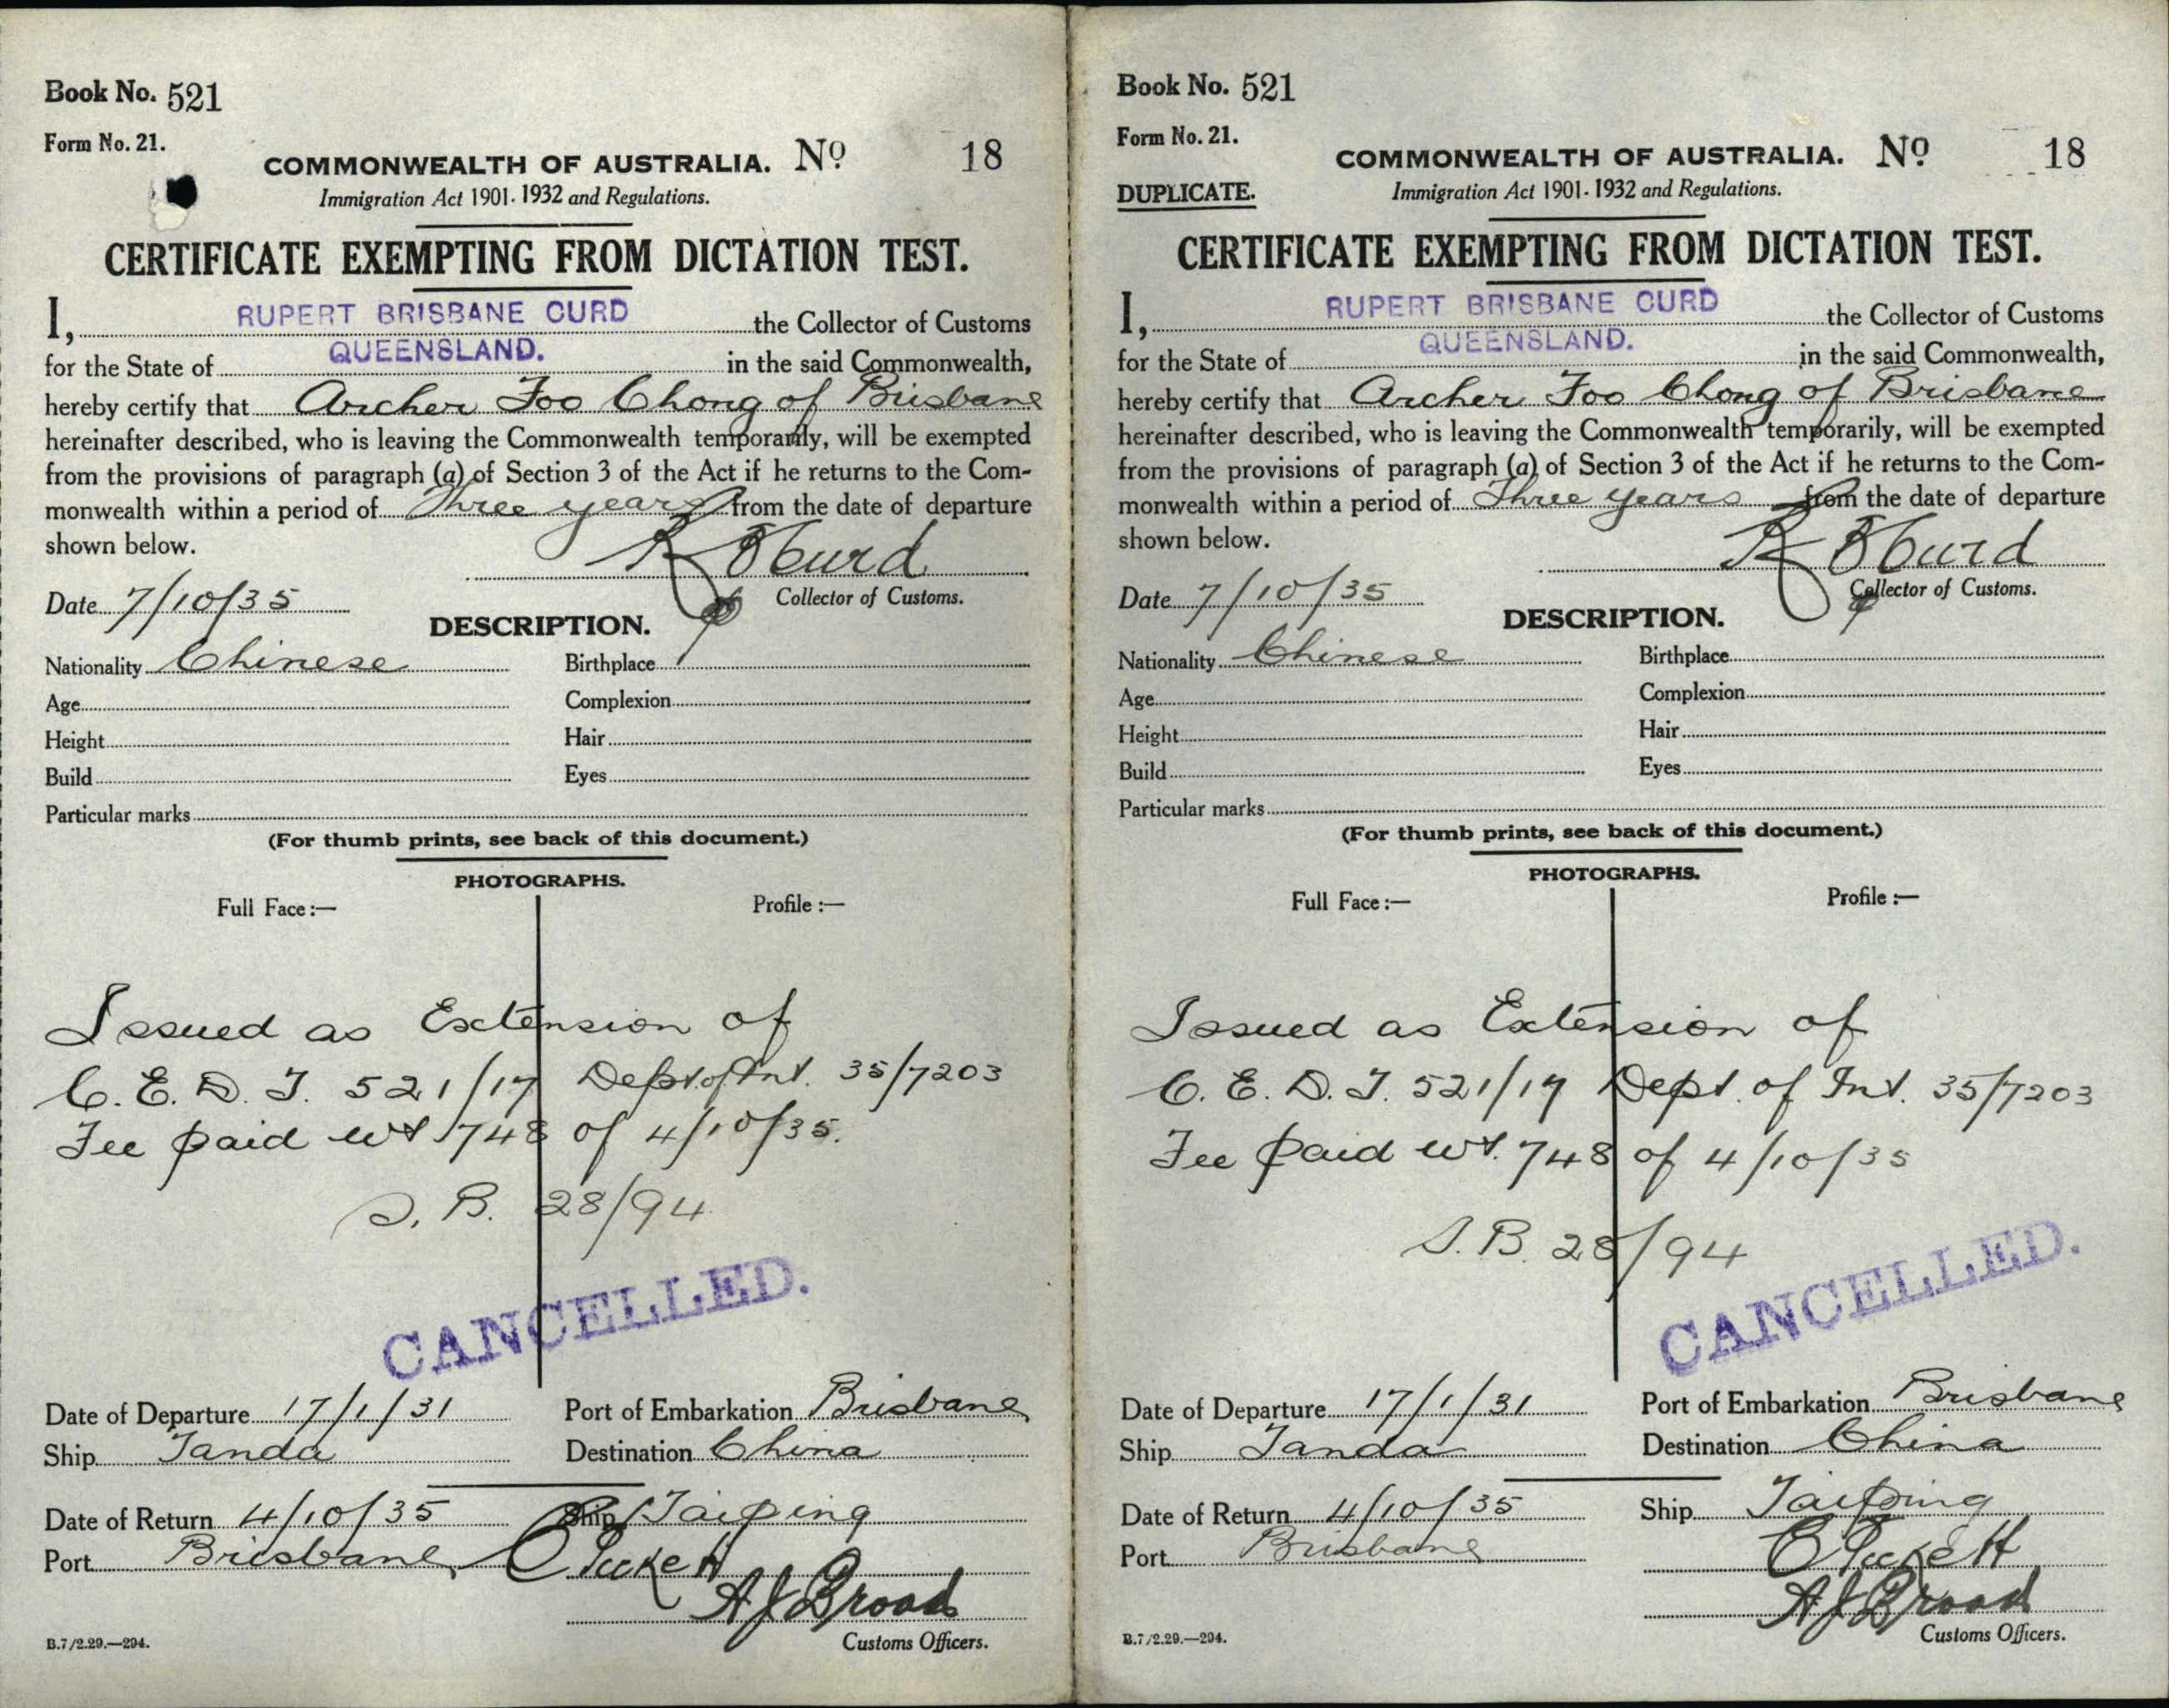 Book No. 521
Form No. 21.
COMMONWEALTH OF AUSTRALIA. No 18
Immigration Act 1901-1932 and Regulations.
CERTIFICATE EXEMPTING FROM DICTATION TEST.
I, RUPERT BRISBANE CURD the Collector of Customs
for the State of QUEENSLAND. in the said Commonwealth,
hereby certify that Archer Foo Chong of Brisbane
hereinafter described, who is leaving the Commonwealth temporarily, will be exempted
from the provisions of paragraph (a) of Section 3 of the Act if he returns to the Com-
monwealth within a period of Three years from the date of departure
shown below.
R B Curd
Date 7/10/35 Collector of Customs.
DESCRIPTION.
Nationality Chinese Birthplace
Age Complexion
Height Hair
Build Eyes
Particular marks
(For thumb prints, see back of this document.)
PHOTOGRAPHS.
Full Face:— Profile:—
Issued as Extension of
C. E. D. T. 521/17 Dept of Int. 35/7203
Fee paid wt 748 of 4/10/35.
S. B. 28/94
CANCELLED.
Date of Departure 17/1/31 Port of Embarkation Brisbane
Ship Tanda Destination China
Date of Return 4/10/35 Ship Taiping
Port Brisbane
A J Broad
B.7/2.29.—294. Customs Officers.
Book No. 521
Form No. 21.
COMMONWEALTH OF AUSTRALIA. No 18
DUPLICATE. Immigration Act 1901-1932 and Regulations.
CERTIFICATE EXEMPTING FROM DICTATION TEST.
I, RUPERT BRISBANE CURD the Collector of Customs
for the State of QUEENSLAND. in the said Commonwealth,
hereby certify that Archer Foo Chong of Brisbane
hereinafter described, who is leaving the Commonwealth temporarily, will be exempted
from the provisions of paragraph (a) of Section 3 of the Act if he returns to the Com-
monwealth within a period of Three years from the date of departure
shown below.
R B Curd
Date 7/10/35 Collector of Customs.
DESCRIPTION.
Nationality Chinese Birthplace
Age Complexion
Height Hair
Build Eyes
Particular marks
(For thumb prints, see back of this document.)
PHOTOGRAPHS.
Full Face:— Profile:—
Issued as Extension of
C. E. D. T. 521/17 Dept. of Int. 35/7203
Fee paid wt. 748 of 4/10/35
S. B. 28/94
CANCELLED.
Date of Departure 17/1/31 Port of Embarkation Brisbane
Ship Tanda Destination China
Date of Return 4/10/35 Ship Taiping
Port Brisbane
A J Broad
B.7/2.29.—294. Customs Officers.